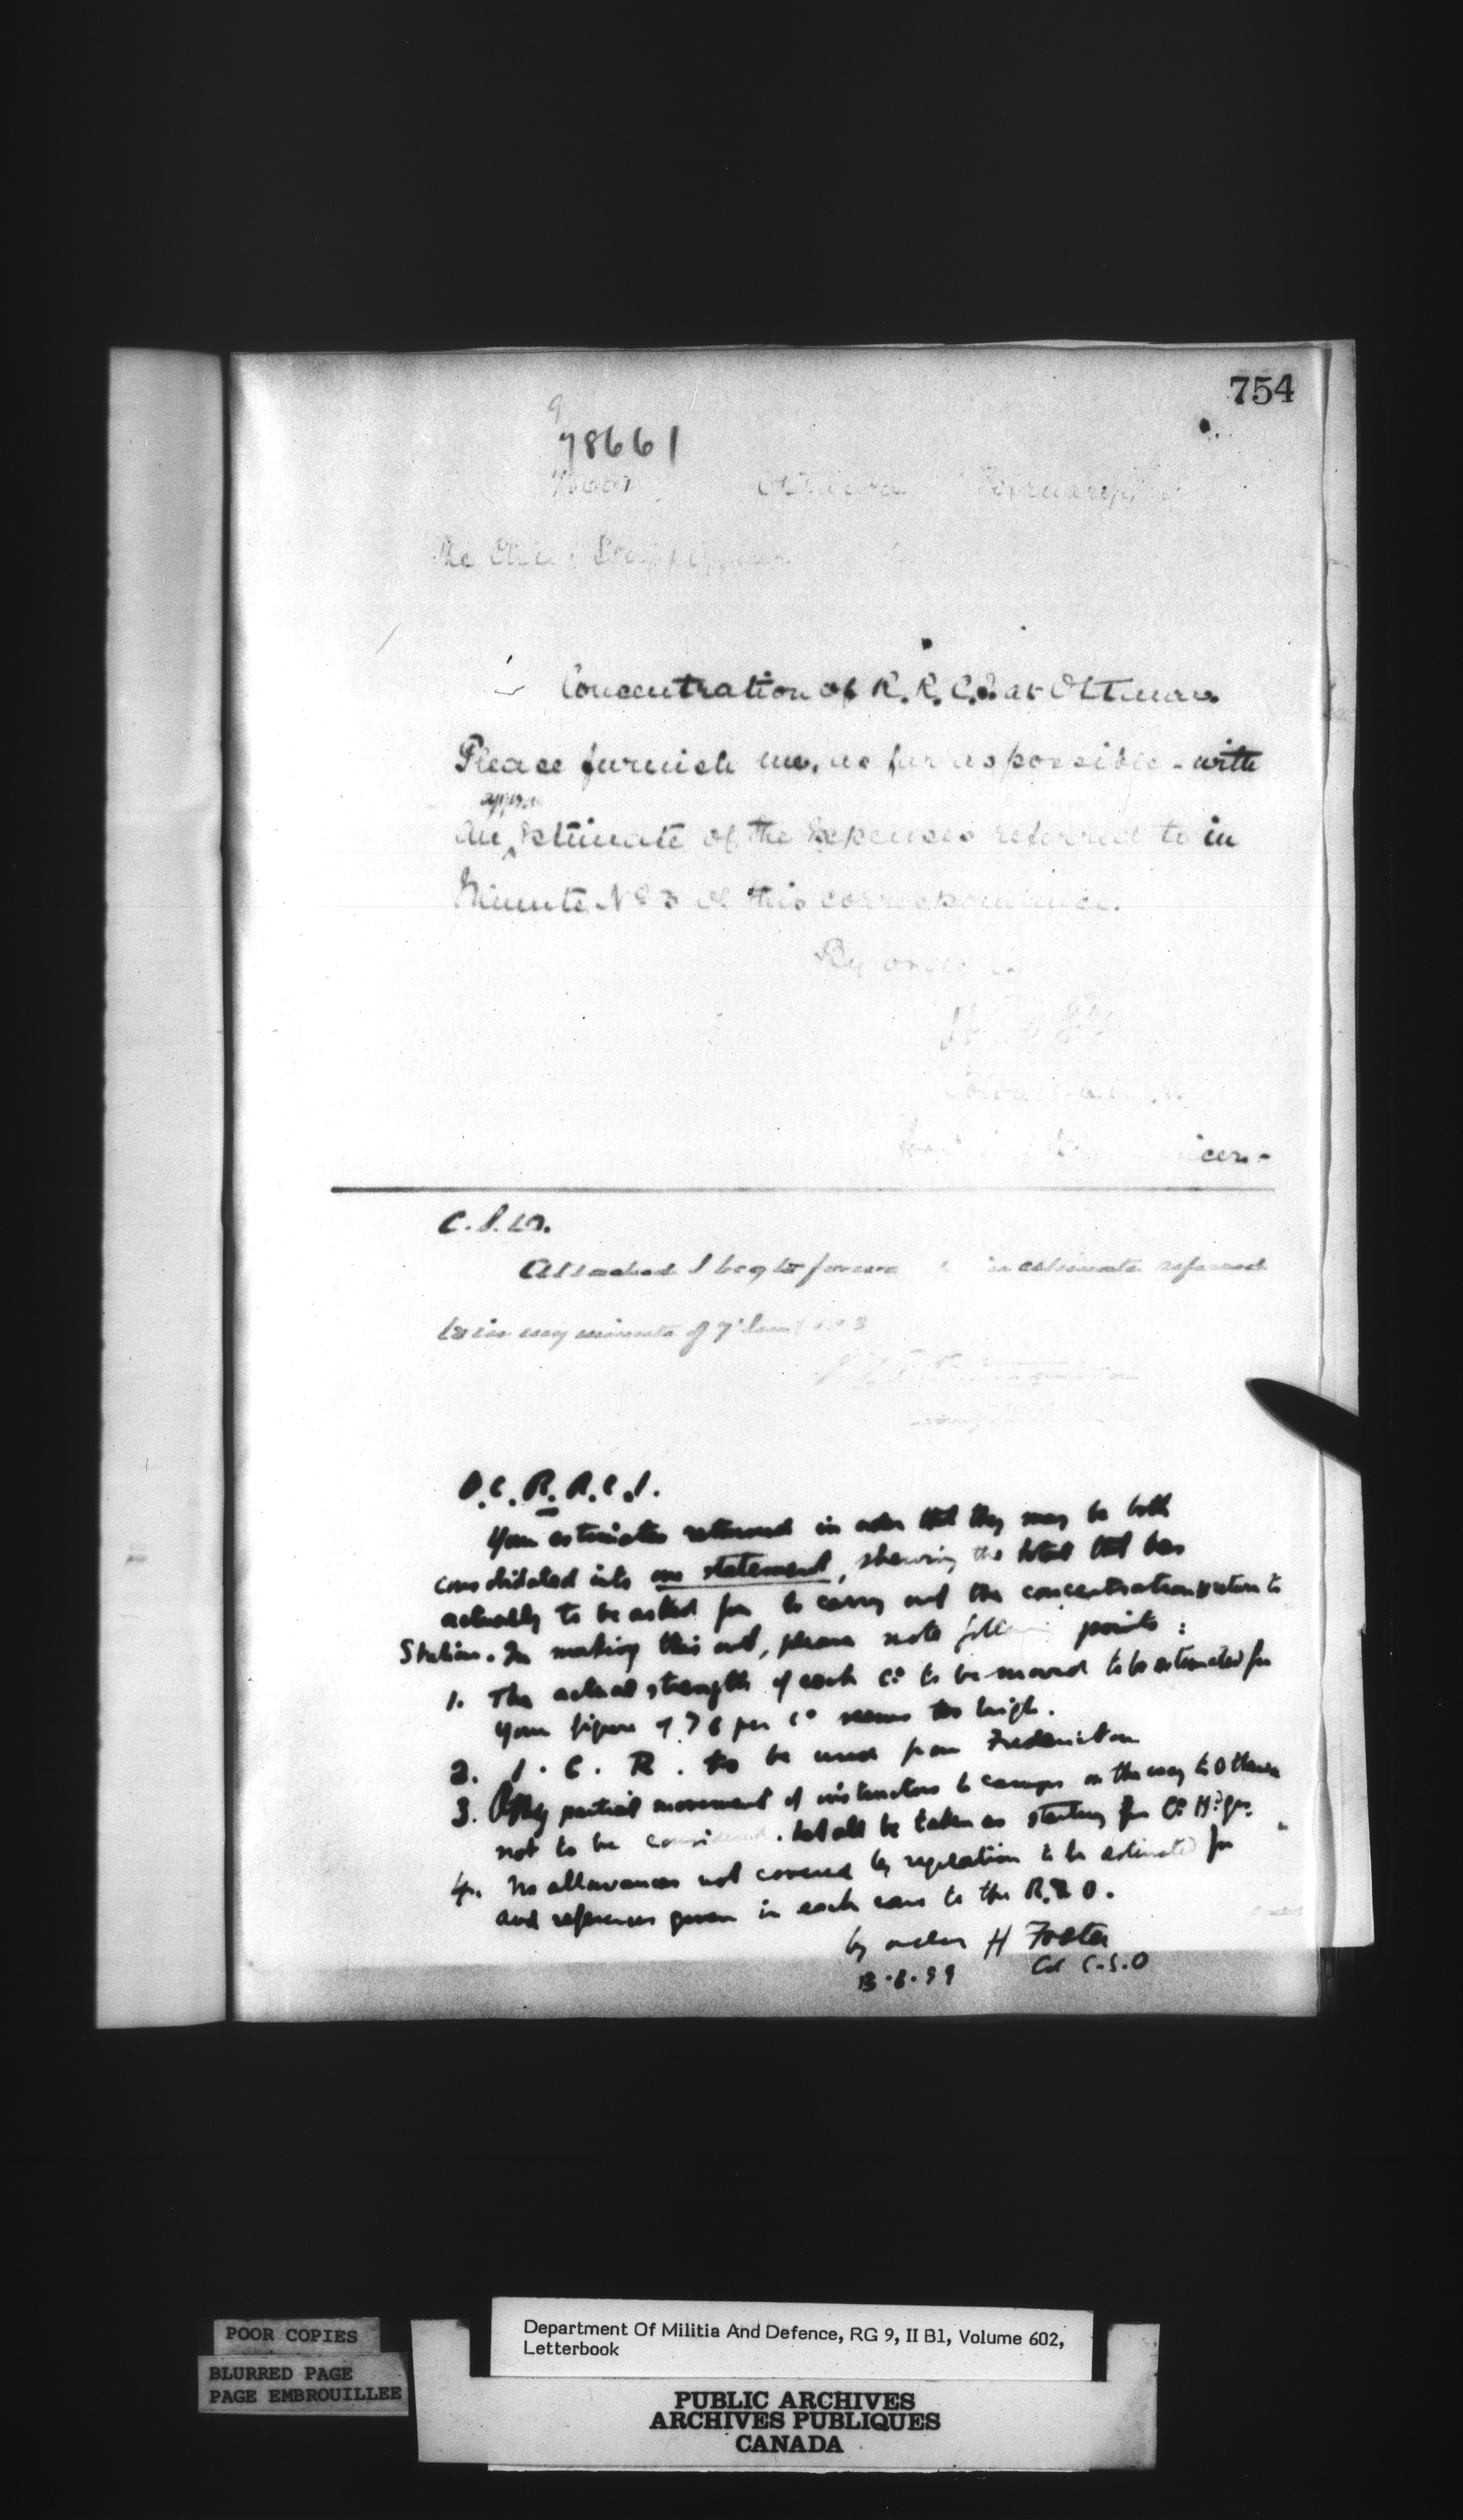 754
9
78661
Ottawa February
The Chief Staff Officer
Concentration of R.R.C.I. at Ottawa.
Please furnish me, as far as possible - with
approx
an estimate of the expenses referred to in
Minute No 3 of this correspondence.
By order
Colonel
C.S.O.
Attached I beg to forward estimate referred
to in my minute of 7
O.C. R.R.C.I.
Your estimates returned in order that they may be both
consolidated into one statement, shewing the total that has
actually to be asked for to carry out the concentration & return to
Station. In making this out, please note following points:
1. The actual strength of each Co to be moved to be estimated for
your figure of 76 per Co seems too high.
2. I.C.R. to be used from Fredericton
3. Any partial movement of instructors to camps on the way to Ottawa
not to be considered. but all be taken as starting from Co Hdqrs.
4. No allowances not covered by regulation to be estimated for
and references given in each case to the R. & O.
by order H Foster
Col C.S.O
13.6.99
POOR COPIES
BLURRED PAGE
PAGE EMBROUILLEE
Department Of Militia And Defence, RG 9, II B1, Volume 602,
Letterbook
PUBLIC ARCHIVES
ARCHIVES PUBLIQUES
CANADA